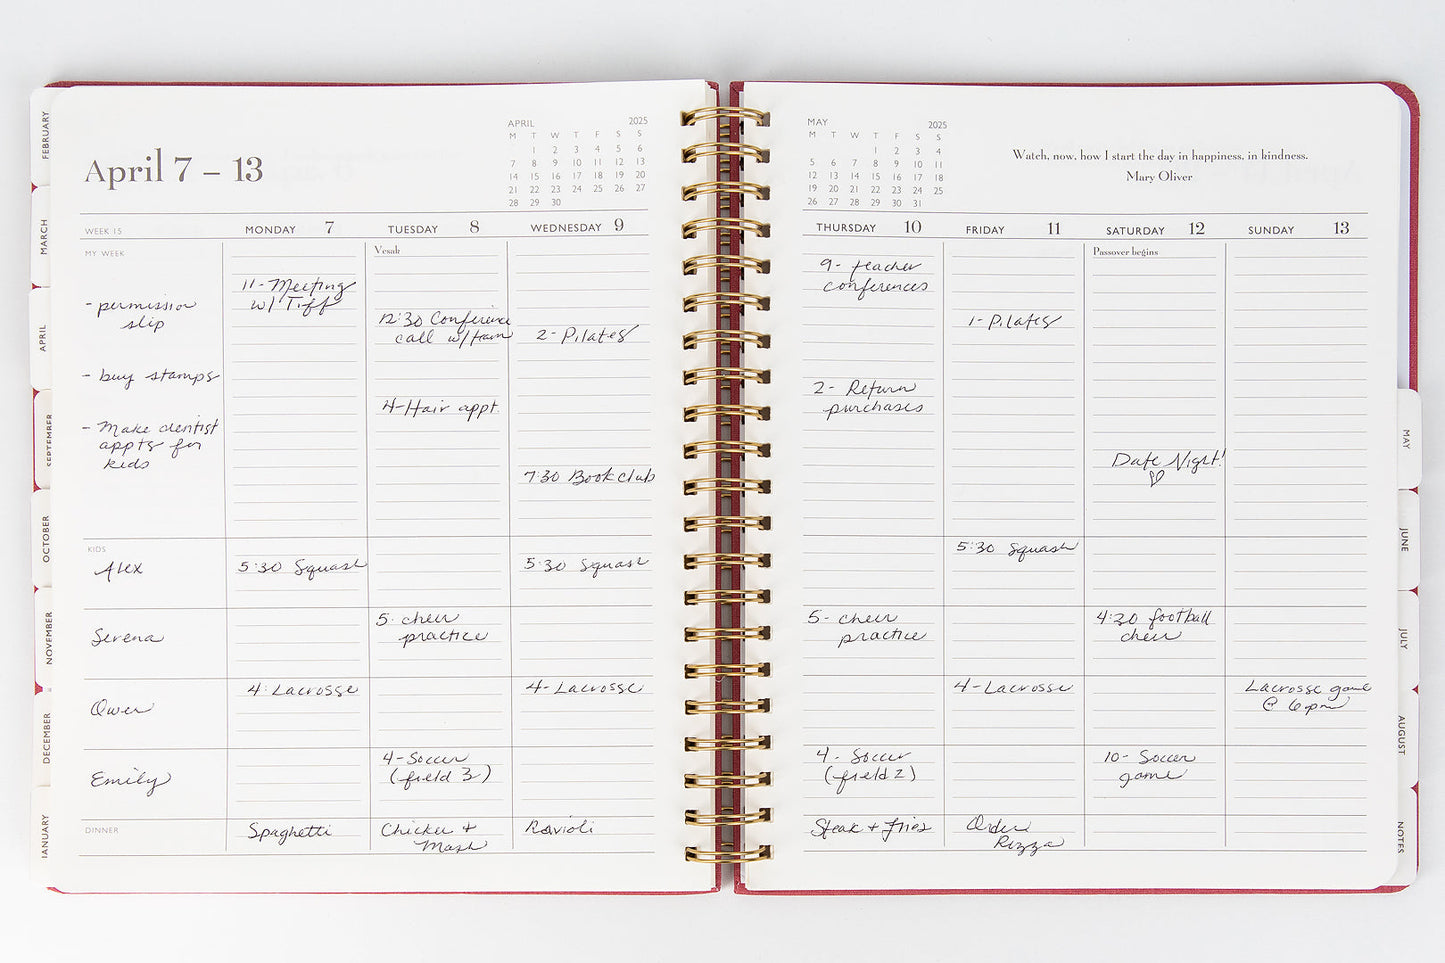 FEBRUARY
MARCH
APRIL
SEPTEMBER
OCTOBER
NOVEMBER
DECEMBER
JANUARY
April 7 – 13
APRIL 2025
M T W T F S S
1 2 3 4 5 6
7 8 9 10 11 12 13
14 15 16 17 18 19 20
21 22 23 24 25 26 27
28 29 30
WEEK 15
MONDAY 7
TUESDAY 8
WEDNESDAY 9
MY WEEK
- permission
slip
- buy stamps
- Make dentist
appts for
kids
11- Meeting
w/ Tiff
Vesak
12:30 Conference
call w/team
4-Hair appt.
2- Pilates
7:30 Book club
KIDS
Alex
5:30 Squash
5:30 Squash
Serena
5- cheer
practice
Owen
4: Lacrosse
4- Lacrosse
Emily
4-Soccer
(field 3)
DINNER
Spaghetti
Chicken +
Mash
Ravioli
MAY 2025
M T W T F S S
1 2 3 4
5 6 7 8 9 10 11
12 13 14 15 16 17 18
19 20 21 22 23 24 25
26 27 28 29 30 31
Watch, now, how I start the day in happiness, in kindness.
Mary Oliver
THURSDAY 10
FRIDAY 11
SATURDAY 12
SUNDAY 13
9- teacher
conferences
2- Return
purchases
1- Pilates
Passover begins
Date Night!
5:30 Squash
5- cheer
practice
4:30 football
cheer
4- Lacrosse
Lacrosse game
@ 6pm
4- Soccer
(field 2)
10- Soccer
game
Steak + fries
Order
Pizza
MAY
JUNE
JULY
AUGUST
NOTES